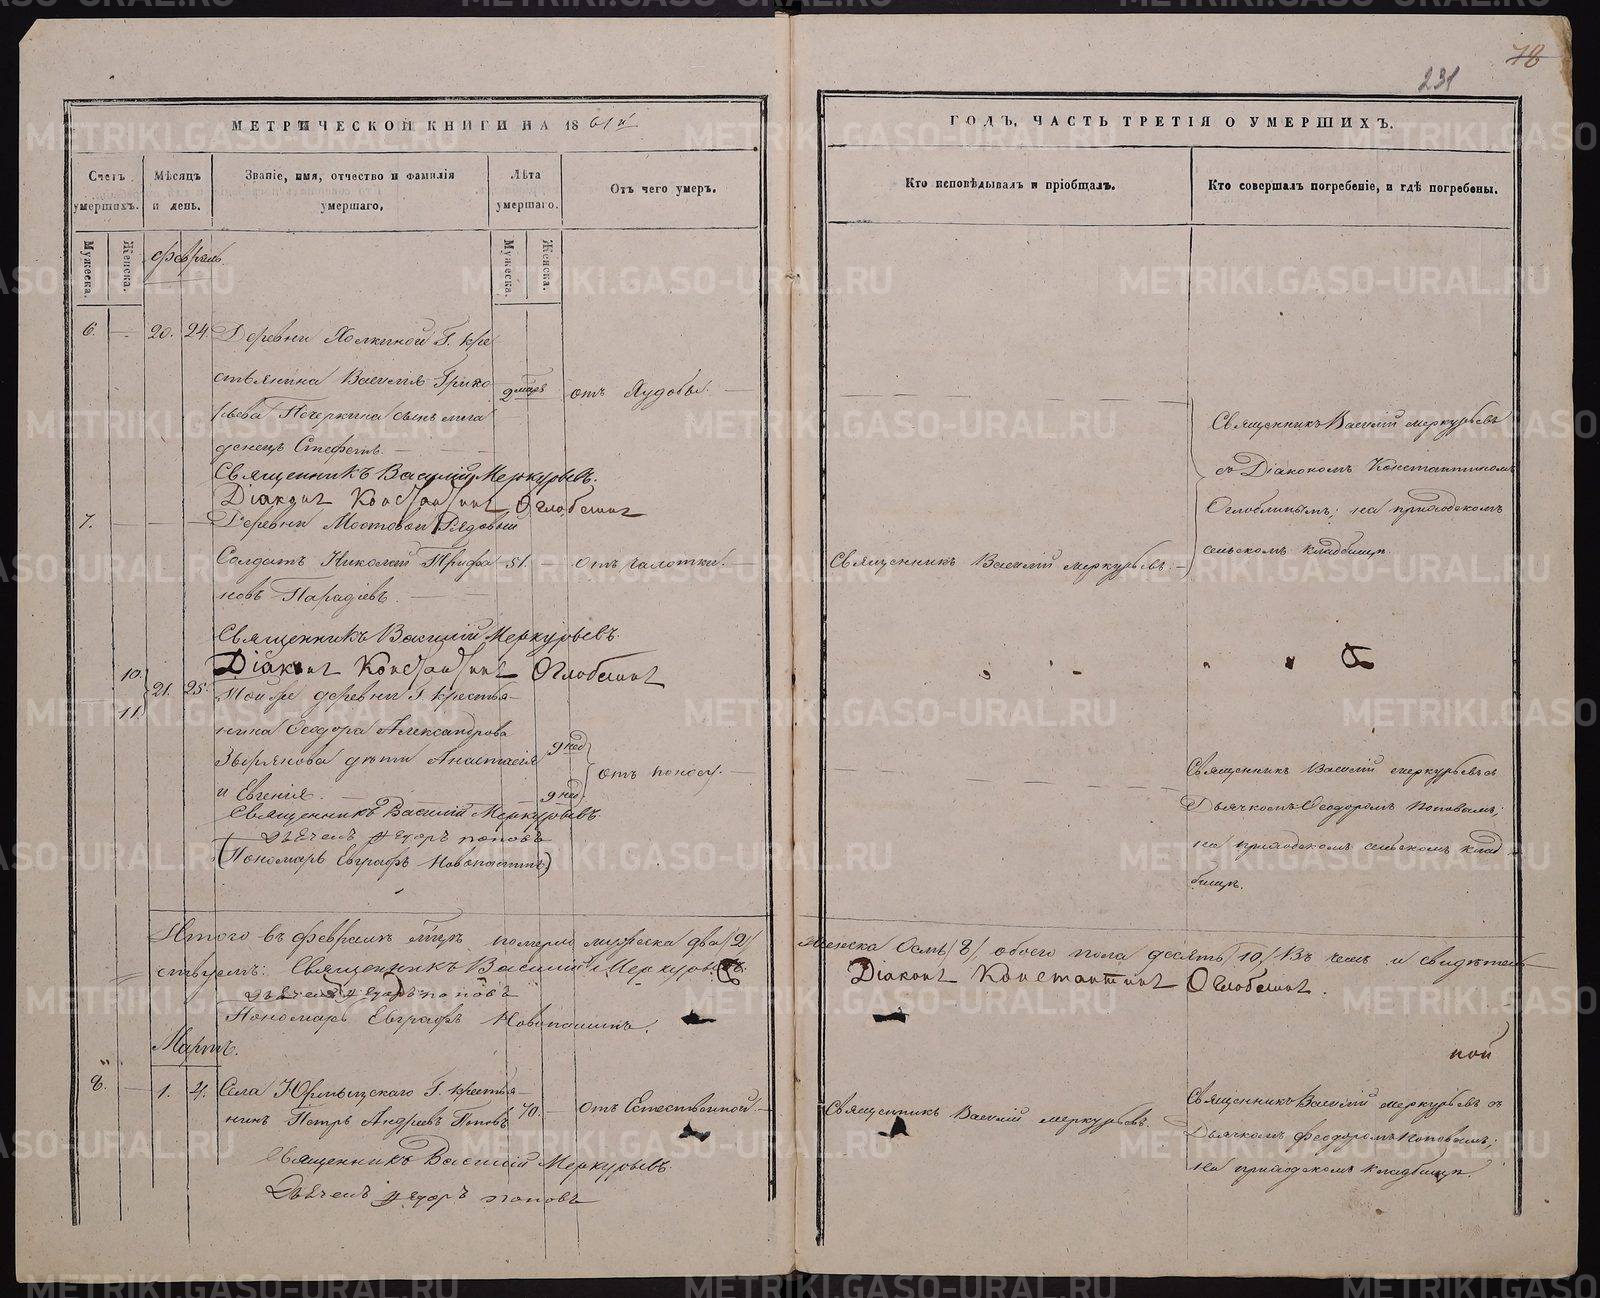 78
231
МЕТРИЧЕСКОЙ КНИГИ НА 1861й
ГОДЪ, ЧАСТЬ ТРЕТІЯ О УМЕРШИХЪ.
Счетъ умершихъ.
Мѣсяцъ и день.
Званіе, имя, отчество и фамилія умершаго,
Лѣта умершаго.
Отъ чего умеръ.
Кто исповѣдывалъ и пріобщалъ.
Кто совершалъ погребеніе, и гдѣ погребены.
Мужеска.
Женска.
Мужеска.
Женска.
Февраль
6. — 20. 24. Деревни Полкиной Г. кре
стьянина Василія Григо
рьева Печеркина сынъ мла
денецъ Стефанъ.
отъ Худобы.
Священникъ Василій Меркурьевъ.
Діаконъ Константинъ Оглоблинъ
7. Деревни Мостовой Рядовый
Солдатъ Николай Трифа 51. — отъ чахотки.
новъ Парадіевъ.
Священникъ Василій Меркурьевъ
Священникъ Василій Меркурьевъ
съ Діакономъ Константиномъ
Оглоблинымъ; на приходскомъ
сельскомъ кладбищѣ.
Священникъ Василій Меркурьевъ.
Діаконъ Константинъ Оглоблинъ
10.
11. 21. 25. Той же деревни Г. крестья-
нина Ѳеодора Александрова
Зырянова дѣти Анастасія 9 нед
и Евгенія. 9 нед.
отъ поносу.
Священникъ Василій Меркурьевъ съ
Дьячкомъ Ѳеодоромъ Поповымъ;
на приходскомъ сельскомъ клад
бищѣ.
Священникъ Василій Меркурьевъ.
Дьячекъ Федоръ Поповъ
(Пономарь Евграфъ Новопашинъ)
Итого въ февралѣ м-цѣ померло мужеска два /2/ женска Осмь /8/, обоего пола десять /10/ Въ чемъ и свидѣтель
ствуемъ: Священникъ Василій Меркурьевъ. Діаконъ Константинъ Оглоблинъ.
Дьячекъ Федоръ Поповъ
Пономарь Евграфъ Новопашинъ.
Мартъ.
8. — 1. 4. Села Юрмытскаго Г. крестья-
никъ Петръ Андреевъ Поповъ 70. — отъ Естественной.
Священникъ Василій Меркурьевъ.
Священникъ Василій Меркурьевъ съ
Дьячкомъ Феодоромъ Поповымъ;
на приходскомъ кладбищѣ.
Священникъ Василій Меркурьевъ.
Дьячекъ Федоръ Поповъ
METRIKI.GASO-URAL.RU